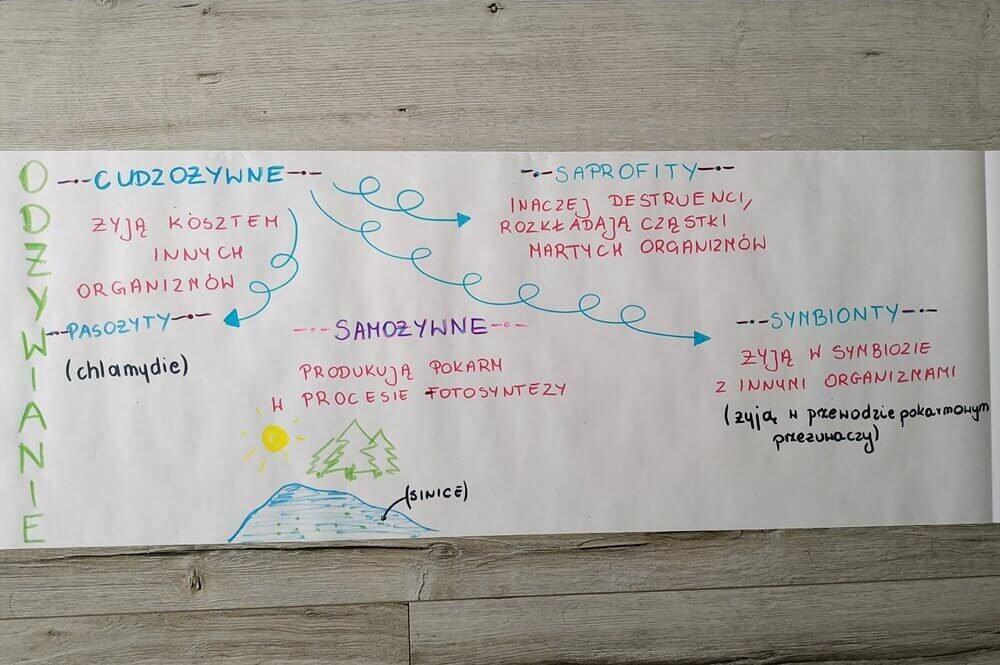 ODŻYWIANIE
CUDZOŻYWNE
ŻYJĄ KOSZTEM
INNYCH
ORGANIZMÓW
PASOŻYTY
(chlamydie)
SAMOŻYWNE
PRODUKUJĄ POKARM
W PROCESIE FOTOSYNTEZY
(SINICE)
SAPROFITY
INACZEJ DESTRUENCI,
ROZKŁADAJĄ CZĄSTKI
MARTYCH ORGANIZMÓW
SYMBIONTY
ŻYJĄ W SYMBIOZIE
Z INNYMI ORGANIZMAMI
(żyją w przewodzie pokarmowym
przeżuwaczy)